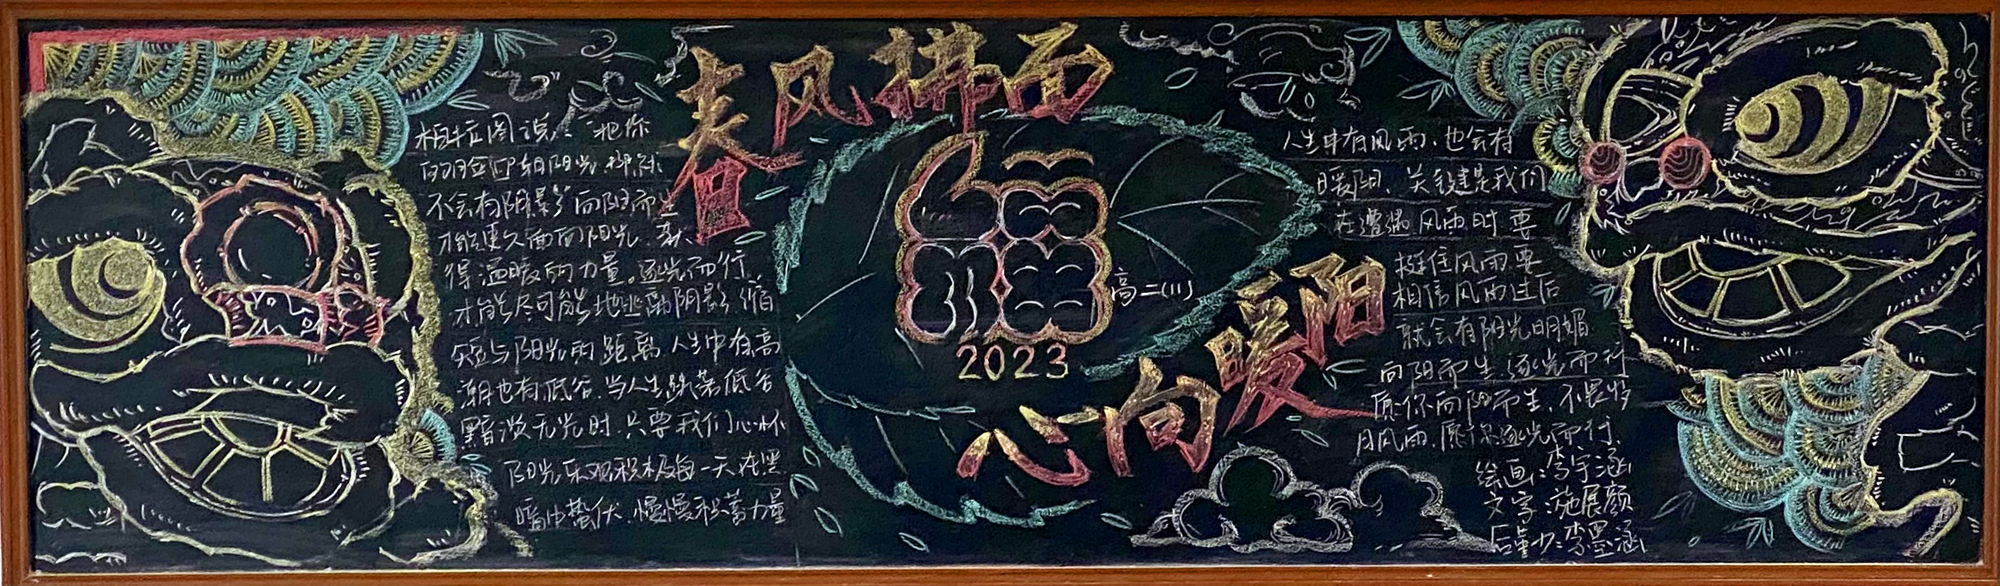 春风拂面
心向暖阳
2023
高二(11)
柏拉图说:"把你
的脸迎朝阳光 那就
不会有阴影"向阳而生
才能更久面向阳光,获
得温暖的力量。逐光而行,
才能尽可能地逃离阴影 缩
短与阳光的距离 人生中有高
潮也有低谷,当人生跌落低谷
黯淡无光时,只要我们心怀
阳光 乐观积极每一天 在黑
暗中蛰伏,慢慢积蓄力量
人生中有风雨,也会有
暖阳,关键是我们
在遭遇风雨时要
挺住风雨,要
相信风雨过后
就会有阳光明媚
向阳而生 逐光而行
愿你向阳而生,不畏岁
月风雨,愿你逐光而行,
绘画:李宇涵
文字:施展颜
后勤:李墨涵